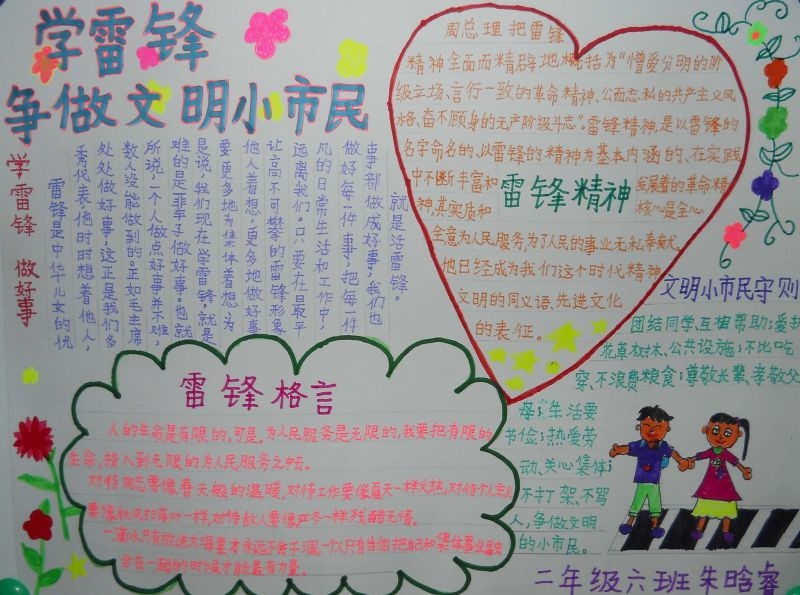 学雷锋
争做文明小市民
学雷锋 做好事
雷锋是中华儿女的优
秀代表他时时想着他人,
处处做好事,这正是我们多
数人没能做到的。正如毛主席
所说:一个人做点好事并不难,
难的是一辈子做好事。也就
是说:我们现在学雷锋,就是
要更多地为集体着想,为
他人着想,更多地做好事
让高不可攀的雷锋形象
远离我们。只要在日最平
凡的日常生活和工作中,
做好每一件事,把每一件
事都做成好事,我们也
就是活雷锋。
周总理把雷锋
精神全面而精辟地概括为“憎爱分明的阶
级立场、言行一致的革命精神、公而忘私的共产主义风
格、奋不顾身的无产阶级斗志”。雷锋精神,是以雷锋的
名字命名的、以雷锋的精神为基本内涵的、在实践
中不断丰富和
发展着的革命精
雷锋精神
神,其实质和
核心是全心
全意为人民服务,为了人民的事业无私奉献。
他已经成为我们这个时代精神
文明的同义语、先进文化
的表征。
文明小市民守则
团结同学、互相帮助;爱护
花草树木、公共设施;不比吃
穿、不浪费粮食;尊敬长辈、孝敬父
母;生活要
节俭;热爱劳
动、关心集体;
不打架、不骂
人,争做文明
的小市民。
雷锋格言
人的生命是有限的,可是,为人民服务是无限的,我要把有限的
生命,投入到无限的为人民服务之中去。
对待同志要像春天般的温暖,对待工作要像夏天一样火热,对待个人主义
要像秋风扫落叶一样,对待敌人要像严冬一样残酷无情。
一滴水只有放进大海里才永远不会干涸,一个人只有当他把自己和集体事业融
合在一起的时候才能最有力量。
二年级六班朱晗睿